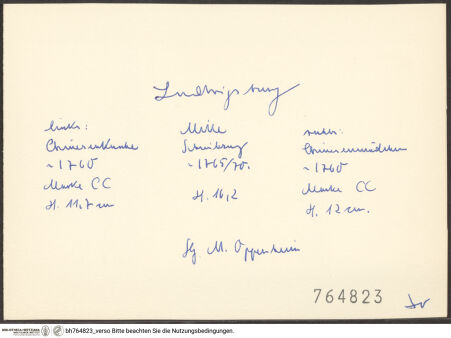 Ludwigsburg
links:
Chinesenknabe
~ 1760
Marke CC
H. 11,7 cm
Mitte
~ 1765/70.
H. 16,2
rechts:
Chinesenmädchen
~ 1760
Marke CC
H. 12 cm.
Slg. M. Oppenheim
764823
BIBLIOTHECA HERTZIANA
bh764823_verso Bitte beachten Sie die Nutzungsbedingungen.